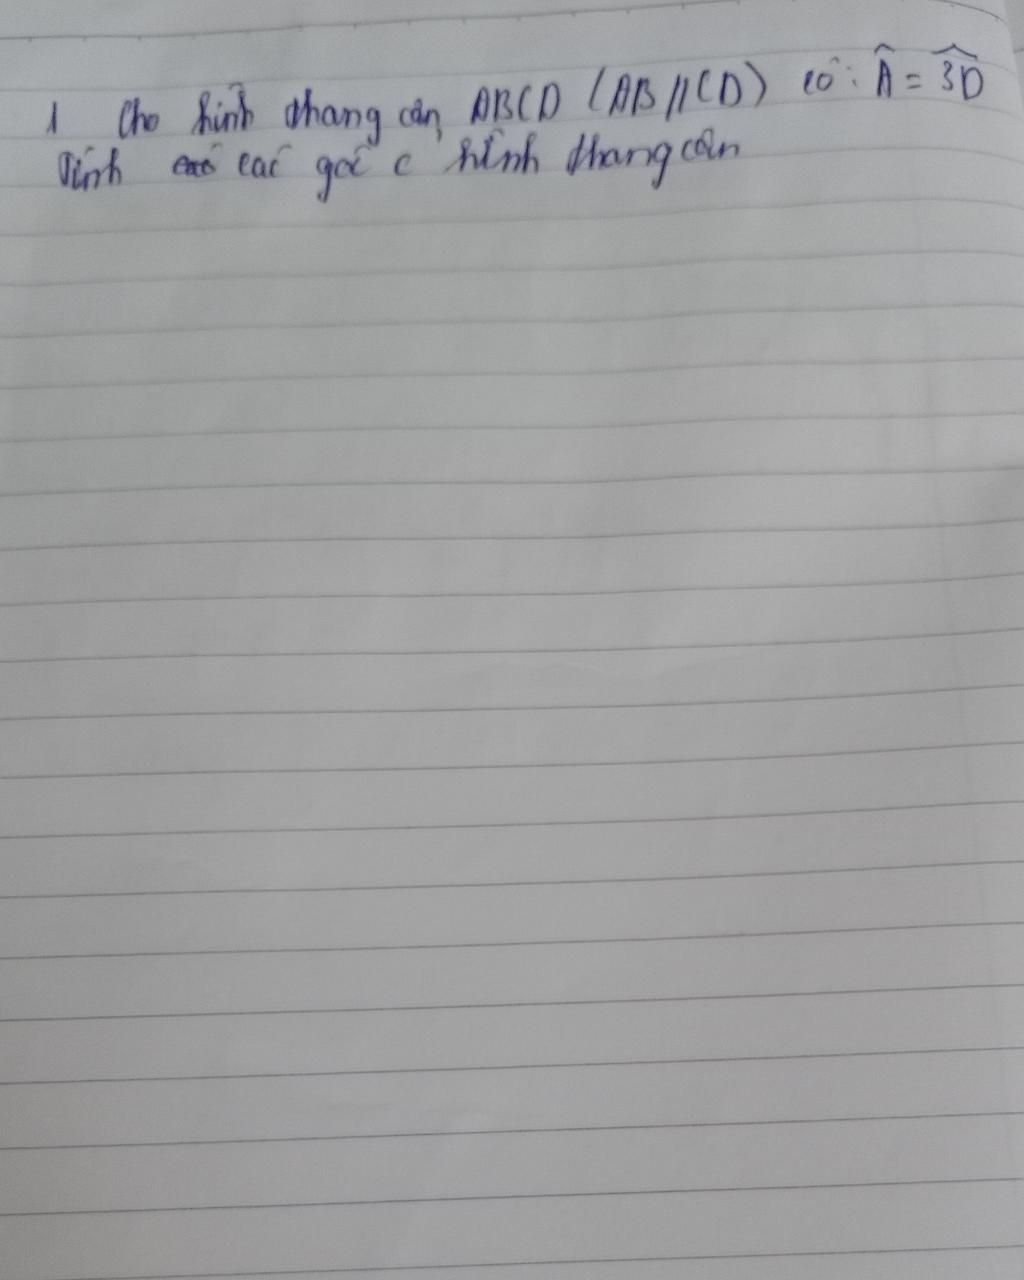 1 Cho hình thang cân ABCD (AB//CD) có: Â = 3D̂
Tính các góc c hình thang cân